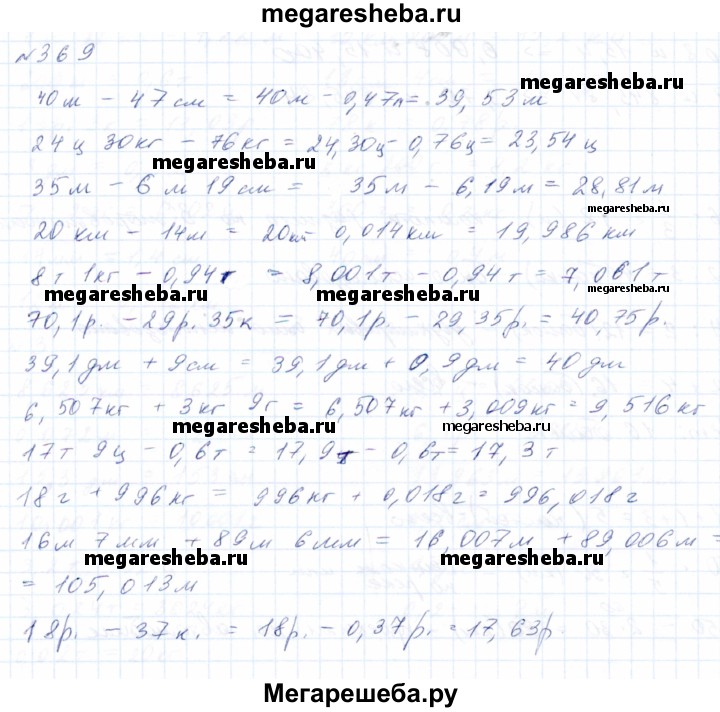 megaresheba.ru
№369
megaresheba.ru
40м - 47см = 40м - 0,47м = 39,53м
24ц 30кг - 76кг = 24,30ц - 0,76ц = 23,54ц
megaresheba.ru
35м - 6м 19см = 35м - 6,19м = 28,81м
megaresheba.ru
20км - 14м = 20км 0,014км = 19,986км
8т 1кг - 0,94т = 8,001т - 0,94т = 7,061т
megaresheba.ru megaresheba.ru megaresheba.ru
70,1р. - 29р. 35к = 70,1р. - 29,35р. = 40,75р.
39,1дм + 9см = 39,1дм + 0,9дм = 40дм
6,507кг + 3кг 9г = 6,507кг + 3,009кг = 9,516кг
megaresheba.ru megaresheba.ru
17т 9ц - 0,6т = 17,9т - 0,6т = 17,3т
18г + 996кг = 996кг + 0,018г = 996,018г
16м 7мм + 89м 6мм = 16,007м + 89,006м =
megaresheba.ru megaresheba.ru
= 105,013м
18р. - 37к. = 18р. - 0,37р. = 17,63р.
megaresheba.ru megaresheba.ru
Мегарешеба.ру